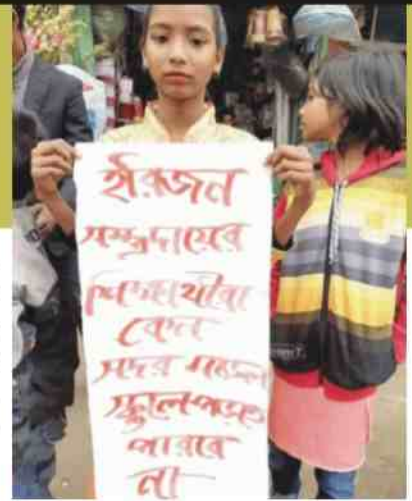 হরিজন
সম্প্রদায়ের
শিক্ষার্থীরা
কেন
সদর মডেল
স্কুলে পড়তে
পারবে
না